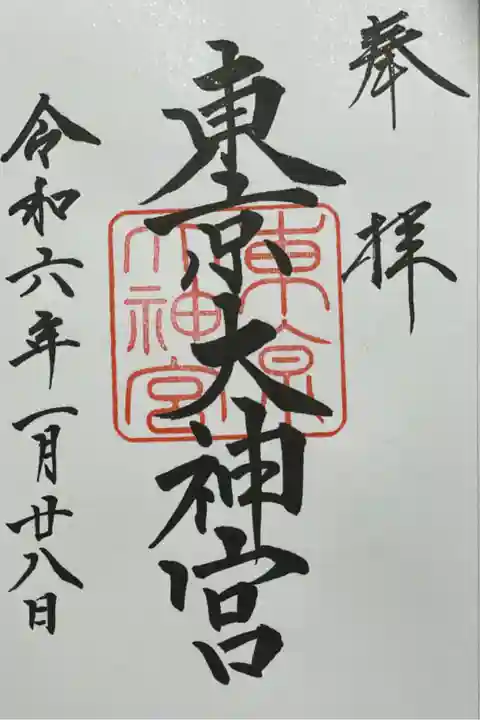 奉拝
東京大神宮
東京
大神宮
令和六年一月廿八日